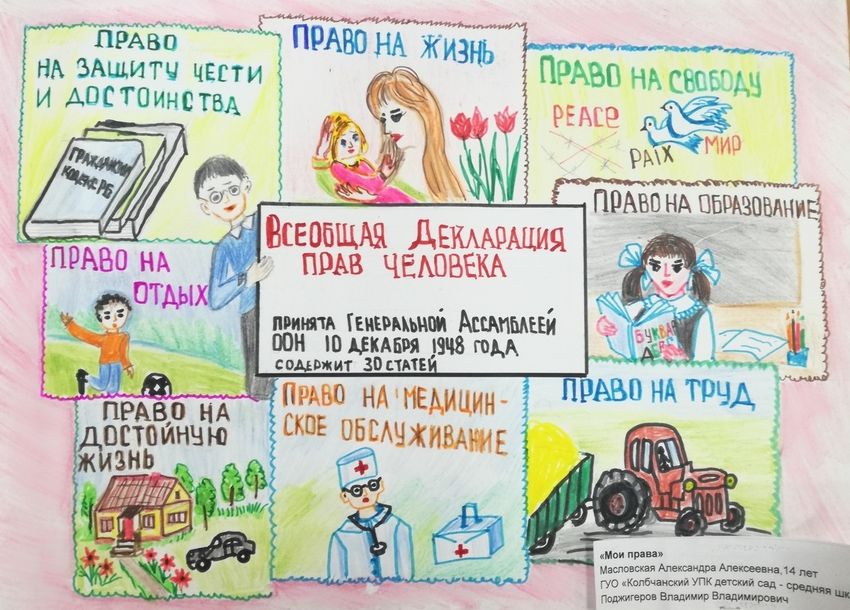 ПРАВО
НА ЗАЩИТУ ЧЕСТИ
И ДОСТОИНСТВА
ГРАЖДАНСКИЙ
КОДЕКС РБ
ПРАВО НА ЖИЗНЬ
ПРАВО НА СВОБОДУ
PEACE
PAIX
МИР
ПРАВО НА
ОТДЫХ
ВСЕОБЩАЯ ДЕКЛАРАЦИЯ
ПРАВ ЧЕЛОВЕКА
ПРИНЯТА ГЕНЕРАЛЬНОЙ АССАМБЛЕЕЙ
ООН 10 ДЕКАБРЯ 1948 ГОДА
СОДЕРЖИТ 30 СТАТЕЙ
ПРАВО НА ОБРАЗОВАНИЕ
БУКВАР
ПРАВО НА
ДОСТОЙНУЮ
ЖИЗНЬ
ПРАВО НА МЕДИЦИН-
СКОЕ ОБСЛУЖИВАНИЕ
ПРАВО НА ТРУД
«Мои права»
Масловская Александра Алексеевна,14 лет
ГУО «Колбчанский УПК детский сад - средняя шк
Поджигеров Владимир Владимирович